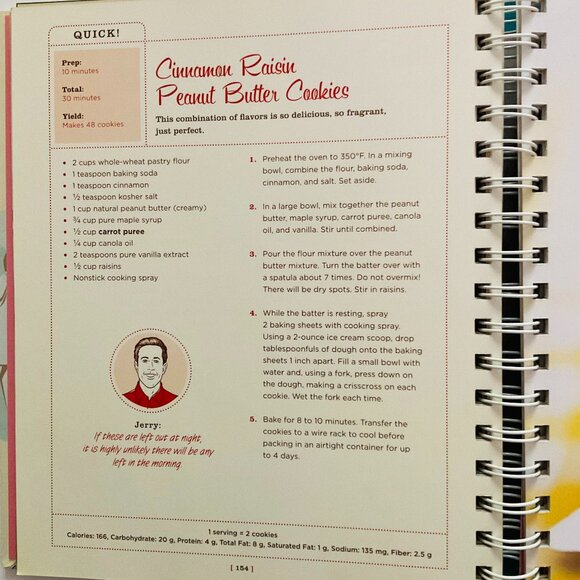 QUICK!
Prep:
10 minutes
Total:
30 minutes
Yield:
Makes 48 cookies
Cinnamon Raisin
Peanut Butter Cookies
This combination of flavors is so delicious, so fragrant,
just perfect.
• 2 cups whole-wheat pastry flour
• 1 teaspoon baking soda
• 1 teaspoon cinnamon
• ½ teaspoon kosher salt
• 1 cup natural peanut butter (creamy)
• ¾ cup pure maple syrup
• ½ cup carrot puree
• ¼ cup canola oil
• 2 teaspoons pure vanilla extract
• ½ cup raisins
• Nonstick cooking spray
1. Preheat the oven to 350°F. In a mixing
bowl, combine the flour, baking soda,
cinnamon, and salt. Set aside.
2. In a large bowl, mix together the peanut
butter, maple syrup, carrot puree, canola
oil, and vanilla. Stir until combined.
3. Pour the flour mixture over the peanut
butter mixture. Turn the batter over with
a spatula about 7 times. Do not overmix!
There will be dry spots. Stir in raisins.
4. While the batter is resting, spray
2 baking sheets with cooking spray.
Using a 2-ounce ice cream scoop, drop
tablespoonfuls of dough onto the baking
sheets 1 inch apart. Fill a small bowl with
water and, using a fork, press down on
the dough, making a crisscross on each
cookie. Wet the fork each time.
5. Bake for 8 to 10 minutes. Transfer the
cookies to a wire rack to cool before
packing in an airtight container for up
to 4 days.
Jerry:
If these are left out at night,
it is highly unlikely there will be any
left in the morning.
1 serving = 2 cookies
Calories: 166, Carbohydrate: 20 g, Protein: 4 g, Total Fat: 8 g, Saturated Fat: 1 g, Sodium: 135 mg, Fiber: 2.5 g
[ 154 ]